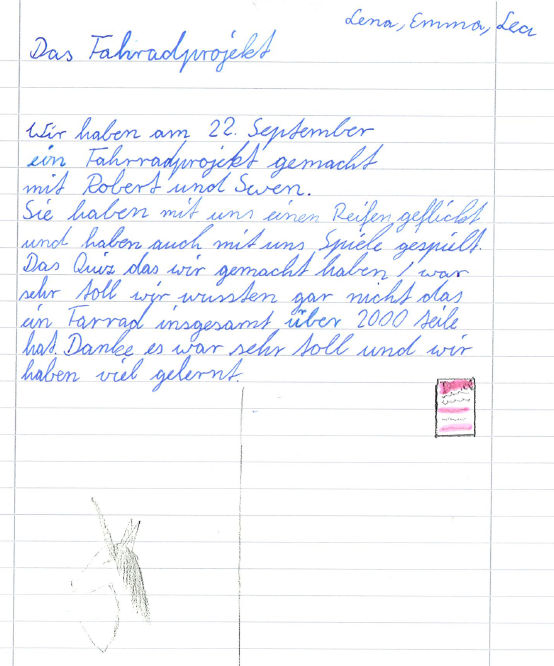 Lena, Emma, Lea
Das Fahrradprojekt
Wir haben am 22. September
ein Fahrradprojekt gemacht
mit Robert und Swen.
Sie haben mit uns einen Reifen geflickt
und haben auch mit uns Spiele gespielt.
Das Quiz das wir gemacht haben, war
sehr toll wir wussten gar nicht das
ein Farrad insgesamt über 2000 teile
hat. Danke es war sehr toll und wir
haben viel gelernt.